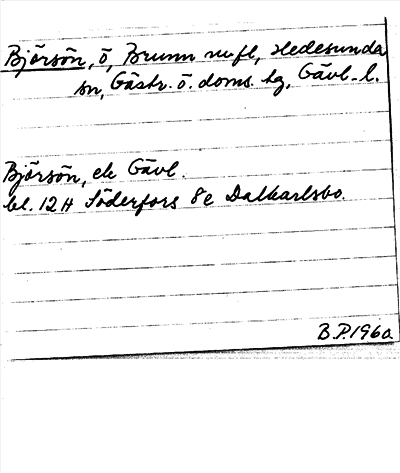 Björsön, ö, Brunn nu fl, Hedesunda
sn, Gästr. ö. doms. hg, Gävl. l.
Björsön, ek Gävl.
bl. 12H Söderfors 8e Dalkarlsbo.
B.P. 1960